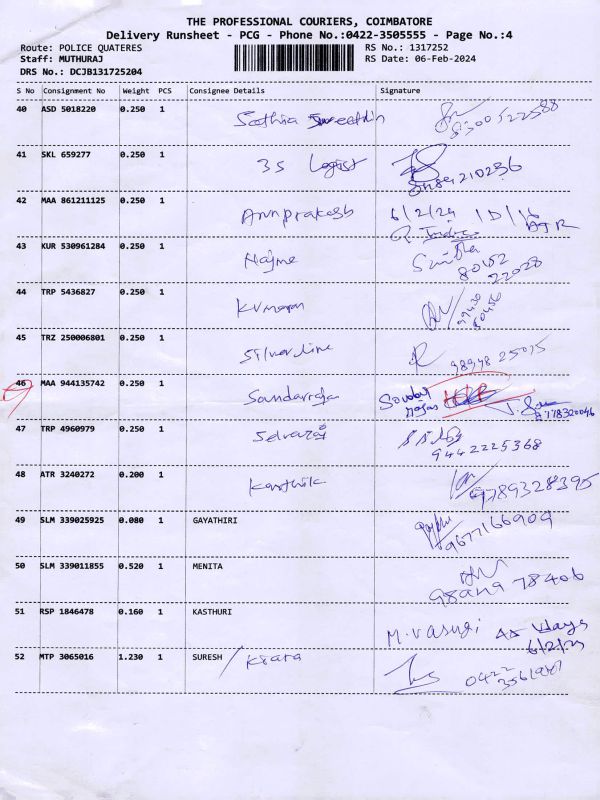 THE PROFESSIONAL COURIERS, COIMBATORE
Delivery Runsheet - PCG - Phone No.:0422-3505555 - Page No.:4
Route: POLICE QUATERES RS No.: 1317252
Staff: MUTHURAJ RS Date: 06-Feb-2024
DRS No.: DCJB131725204
S No Consignment No Weight PCS Consignee Details Signature
40 ASD 5018220 0.250 1 Sathia 8300522588
41 SKL 659277 0.250 1 3S Logist
42 MAA 861211125 0.250 1 Annprakash 6/2/24
43 KUR 530961284 0.250 1 Najme Smitha
80152
22028
44 TRP 5436827 0.250 1 Kumaran
45 TRZ 250006801 0.250 1 Silver line 98948 25015
46 MAA 944135742 0.250 1 Sundarraja
47 TRP 4960979 0.250 1 Selvaraj
9442225368
48 ATR 3240272 0.200 1 Karthik 9789328395
49 SLM 339025925 0.080 1 GAYATHIRI
9677166909
50 SLM 339011855 0.520 1 MENITA
51 RSP 1846478 0.160 1 KASTHURI M. Vasugi
52 MTP 3065016 1.230 1 SURESH / Kiara 0422